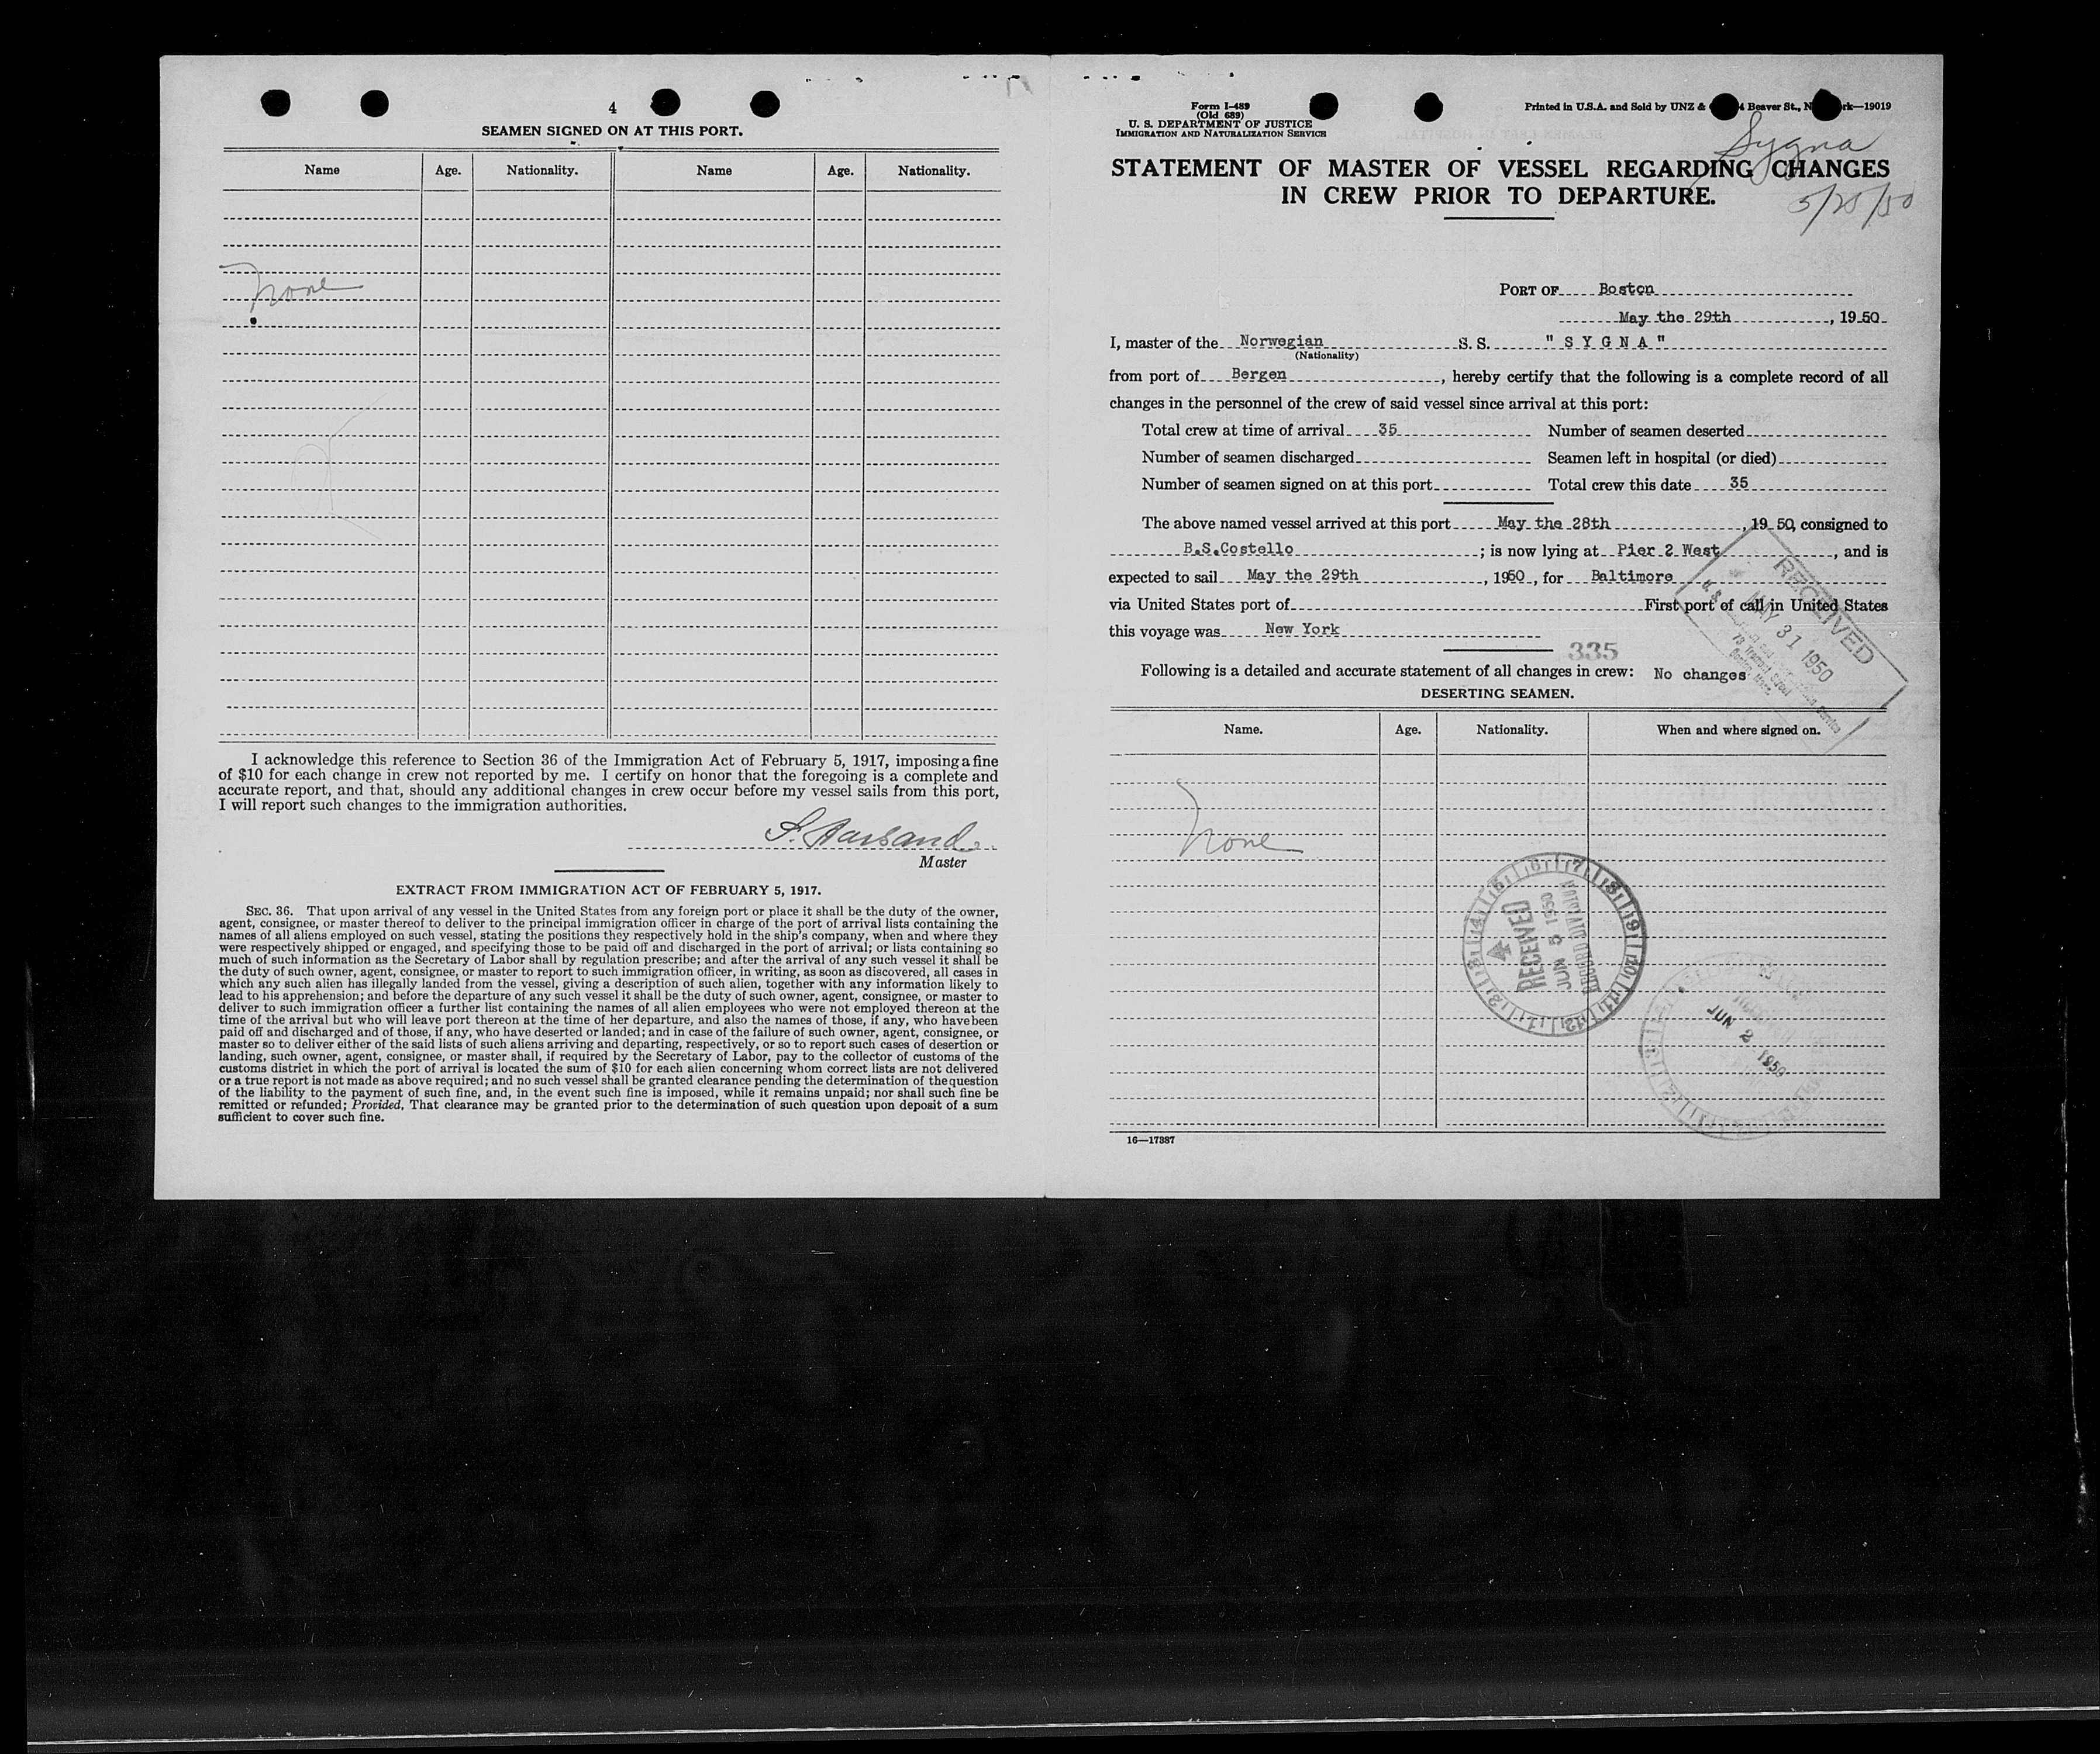 4
SEAMEN SIGNED ON AT THIS PORT.
Name Age. Nationality. Name Age. Nationality.
None
I acknowledge this reference to Section 36 of the Immigration Act of February 5, 1917, imposing a fine
of $10 for each change in crew not reported by me. I certify on honor that the foregoing is a complete and
accurate report, and that, should any additional changes in crew occur before my vessel sails from this port,
I will report such changes to the immigration authorities.
Master
EXTRACT FROM IMMIGRATION ACT OF FEBRUARY 5, 1917.
SEC. 36. That upon arrival of any vessel in the United States from any foreign port or place it shall be the duty of the owner,
agent, consignee, or master thereof to deliver to the principal immigration officer in charge of the port of arrival lists containing the
names of all aliens employed on such vessel, stating the positions they respectively hold in the ship's company, when and where they
were respectively shipped or engaged, and specifying those to be paid off and discharged in the port of arrival; or lists containing so
much of such information as the Secretary of Labor shall by regulation prescribe; and after the arrival of any such vessel it shall be
the duty of such owner, agent, consignee, or master to report to such immigration officer, in writing, as soon as discovered, all cases in
which any such alien has illegally landed from the vessel, giving a description of such alien, together with any information likely to
lead to his apprehension; and before the departure of any such vessel it shall be the duty of such owner, agent, consignee, or master to
deliver to such immigration officer a further list containing the names of all alien employees who were not employed thereon at the
time of the arrival but who will leave port thereon at the time of her departure, and also the names of those, if any, who have been
paid off and discharged and of those, if any, who have deserted or landed; and in case of the failure of such owner, agent, consignee, or
master so to deliver either of the said lists of such aliens arriving and departing, respectively, or so to report such cases of desertion or
landing, such owner, agent, consignee, or master shall, if required by the Secretary of Labor, pay to the collector of customs of the
customs district in which the port of arrival is located the sum of $10 for each alien concerning whom correct lists are not delivered
or a true report is not made as above required; and no such vessel shall be granted clearance pending the determination of the question
of the liability to the payment of such fine, and, in the event such fine is imposed, while it remains unpaid; nor shall such fine be
remitted or refunded; Provided, That clearance may be granted prior to the determination of such question upon deposit of a sum
sufficient to cover such fine.
Form I-489
(Old 689)
U. S. DEPARTMENT OF JUSTICE
IMMIGRATION AND NATURALIZATION SERVICE
Printed in U.S.A. and Sold by UNZ & Beaver St., —19019
Sygna
STATEMENT OF MASTER OF VESSEL REGARDING CHANGES
IN CREW PRIOR TO DEPARTURE.
PORT OF Boston
May the 29th, 1950
I, master of the Norwegian S.S. "SYGNA"
(Nationality)
from port of Bergen, hereby certify that the following is a complete record of all
changes in the personnel of the crew of said vessel since arrival at this port:
Total crew at time of arrival 35 Number of seamen deserted
Number of seamen discharged Seamen left in hospital (or died)
Number of seamen signed on at this port Total crew this date 35
The above named vessel arrived at this port May the 28th, 1950, consigned to
B.S.Costello; is now lying at Pier 2 West, and is
expected to sail May the 29th, 1950, for Baltimore
via United States port of First port of call in United States
this voyage was New York
335
RECEIVED
MAY 31 1950
Following is a detailed and accurate statement of all changes in crew: No changes
DESERTING SEAMEN.
Name. Age. Nationality. When and where signed on.
None
RECEIVED
JUN 5 1950
RECORD DIVISION
JUN 2 1950
16—17387